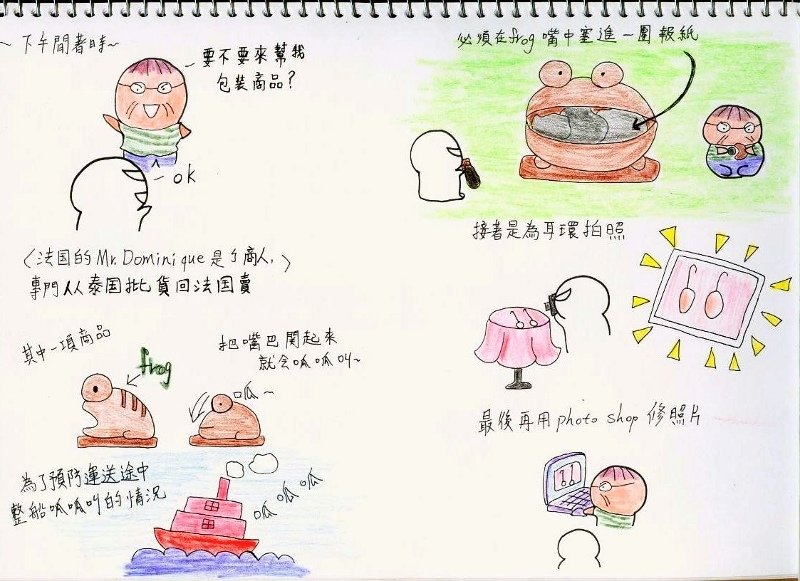 ~下午閒著時~
要不要來幫我
包裝商品?
ok
〈法国的Mr. Dominique是ㄅ商人,〉
專門从泰国批貨回法国賣
其中一項商品
frog
把嘴巴関起來
就会呱呱叫~
呱~
為了預防運送途中
整船呱呱叫的情況
呱 呱 呱
必須在frog嘴中塞進一團報紙
接著是為耳環拍照
最後再用photo shop修照片